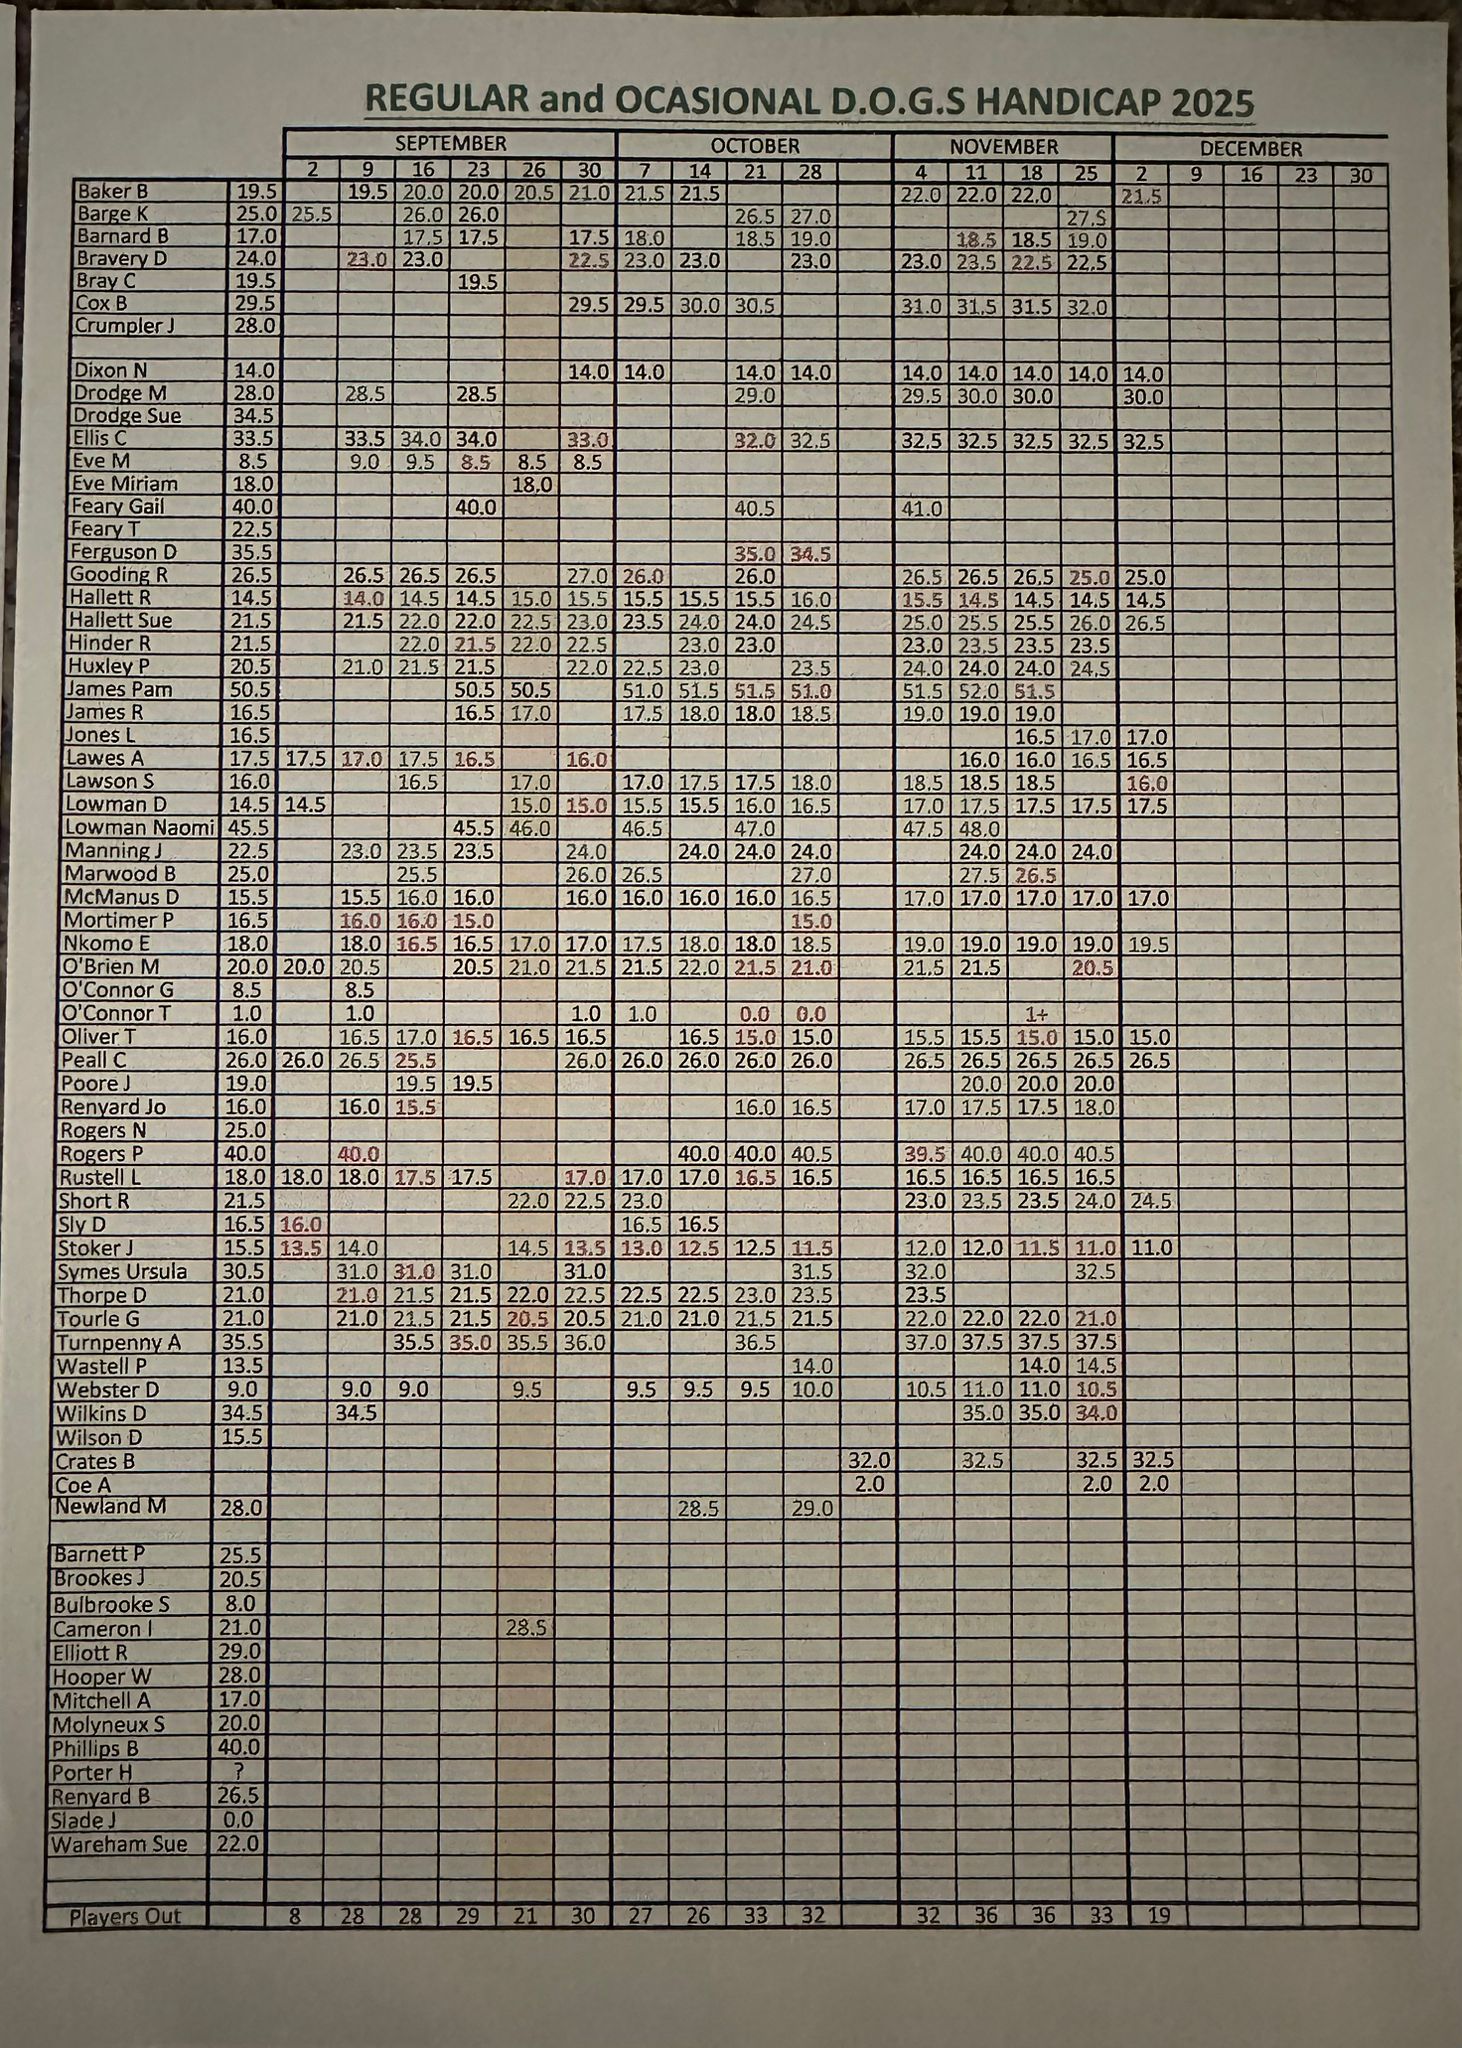 REGULAR and OCASIONAL D.O.G.S HANDICAP 2025
SEPTEMBER OCTOBER NOVEMBER DECEMBER
2 9 16 23 26 30 7 14 21 28 4 11 18 25 2 9 16 23 30
Baker B 19.5 19.5 20.0 20.0 20.5 21.0 21.5 21.5 22.0 22.0 22.0 21.5
Barge K 25.0 25.5 26.0 26.0 26.5 27.0 27.5
Barnard B 17.0 17.5 17.5 17.5 18.0 18.5 19.0 18.5 18.5 19.0
Bravery D 24.0 23.0 23.0 22.5 23.0 23.0 23.0 23.0 23.5 22.5 22.5
Bray C 19.5 19.5
Cox B 29.5 29.5 29.5 30.0 30.5 31.0 31.5 31.5 32.0
Crumpler J 28.0
Dixon N 14.0 14.0 14.0 14.0 14.0 14.0 14.0 14.0 14.0 14.0
Drodge M 28.0 28.5 28.5 29.0 29.5 30.0 30.0 30.0
Drodge Sue 34.5
Ellis C 33.5 33.5 34.0 34.0 33.0 32.0 32.5 32.5 32.5 32.5 32.5 32.5
Eve M 8.5 9.0 9.5 8.5 8.5 8.5
Eve Miriam 18.0 18.0
Feary Gail 40.0 40.0 40.5 41.0
Feary T 22.5
Ferguson D 35.5 35.0 34.5
Gooding R 26.5 26.5 26.5 26.5 27.0 26.0 26.0 26.5 26.5 26.5 25.0 25.0
Hallett R 14.5 14.0 14.5 14.5 15.0 15.5 15.5 15.5 15.5 16.0 15.5 14.5 14.5 14.5 14.5
Hallett Sue 21.5 21.5 22.0 22.0 22.5 23.0 23.5 24.0 24.0 24.5 25.0 25.5 25.5 26.0 26.5
Hinder R 21.5 22.0 21.5 22.0 22.5 23.0 23.0 23.0 23.5 23.5 23.5
Huxley P 20.5 21.0 21.5 21.5 22.0 22.5 23.0 23.5 24.0 24.0 24.0 24.5
James Pam 50.5 50.5 50.5 51.0 51.5 51.5 51.0 51.5 52.0 51.5
James R 16.5 16.5 17.0 17.5 18.0 18.0 18.5 19.0 19.0 19.0
Jones L 16.5 16.5 17.0 17.0
Lawes A 17.5 17.5 17.0 17.5 16.5 16.0 16.0 16.0 16.5 16.5
Lawson S 16.0 16.5 17.0 17.0 17.5 17.5 18.0 18.5 18.5 18.5 16.0
Lowman D 14.5 14.5 15.0 15.0 15.5 15.5 16.0 16.5 17.0 17.5 17.5 17.5 17.5
Lowman Naomi 45.5 45.5 46.0 46.5 47.0 47.5 48.0
Manning J 22.5 23.0 23.5 23.5 24.0 24.0 24.0 24.0 24.0 24.0 24.0
Marwood B 25.0 25.5 26.0 26.5 27.0 27.5 26.5
McManus D 15.5 15.5 16.0 16.0 16.0 16.0 16.0 16.0 16.5 17.0 17.0 17.0 17.0 17.0
Mortimer P 16.5 16.0 16.0 15.0 15.0
Nkomo E 18.0 18.0 16.5 16.5 17.0 17.0 17.5 18.0 18.0 18.5 19.0 19.0 19.0 19.0 19.5
O'Brien M 20.0 20.0 20.5 20.5 21.0 21.5 21.5 22.0 21.5 21.0 21.5 21.5 20.5
O'Connor G 8.5 8.5
O'Connor T 1.0 1.0 1.0 1.0 0.0 0.0 1+
Oliver T 16.0 16.5 17.0 16.5 16.5 16.5 16.5 15.0 15.0 15.5 15.5 15.0 15.0 15.0
Peall C 26.0 26.0 26.5 25.5 26.0 26.0 26.0 26.0 26.0 26.5 26.5 26.5 26.5 26.5
Poore J 19.0 19.5 19.5 20.0 20.0 20.0
Renyard Jo 16.0 16.0 15.5 16.0 16.5 17.0 17.5 17.5 18.0
Rogers N 25.0
Rogers P 40.0 40.0 40.0 40.0 40.5 39.5 40.0 40.0 40.5
Rustell L 18.0 18.0 18.0 17.5 17.5 17.0 17.0 17.0 16.5 16.5 16.5 16.5 16.5 16.5
Short R 21.5 22.0 22.5 23.0 23.0 23.5 23.5 24.0 24.5
Sly D 16.5 16.0 16.5 16.5
Stoker J 15.5 13.5 14.0 14.5 13.5 13.0 12.5 12.5 11.5 12.0 12.0 11.5 11.0 11.0
Symes Ursula 30.5 31.0 31.0 31.0 31.0 31.5 32.0 32.5
Thorpe D 21.0 21.0 21.5 21.5 22.0 22.5 22.5 22.5 23.0 23.5 23.5
Tourle G 21.0 21.0 21.5 21.5 20.5 20.5 21.0 21.0 21.5 21.5 22.0 22.0 22.0 21.0
Turnpenny A 35.5 35.5 35.0 35.5 36.0 36.5 37.0 37.5 37.5 37.5
Wastell P 13.5 14.0 14.0 14.5
Webster D 9.0 9.0 9.0 9.5 9.5 9.5 9.5 10.0 10.5 11.0 11.0 10.5
Wilkins D 34.5 34.5 35.0 35.0 34.0
Wilson D 15.5
Crates B 32.0 32.5 32.5 32.5
Coe A 2.0 2.0 2.0
Newland M 28.0 28.5 29.0
Barnett P 25.5
Brookes J 20.5
Bulbrooke S 8.0
Cameron I 21.0 28.5
Elliott R 29.0
Hooper W 28.0
Mitchell A 17.0
Molyneux S 20.0
Phillips B 40.0
Porter H ?
Renyard B 26.5
Slade J 0.0
Wareham Sue 22.0
Players Out 8 28 28 29 21 30 27 26 33 32 32 36 36 33 19